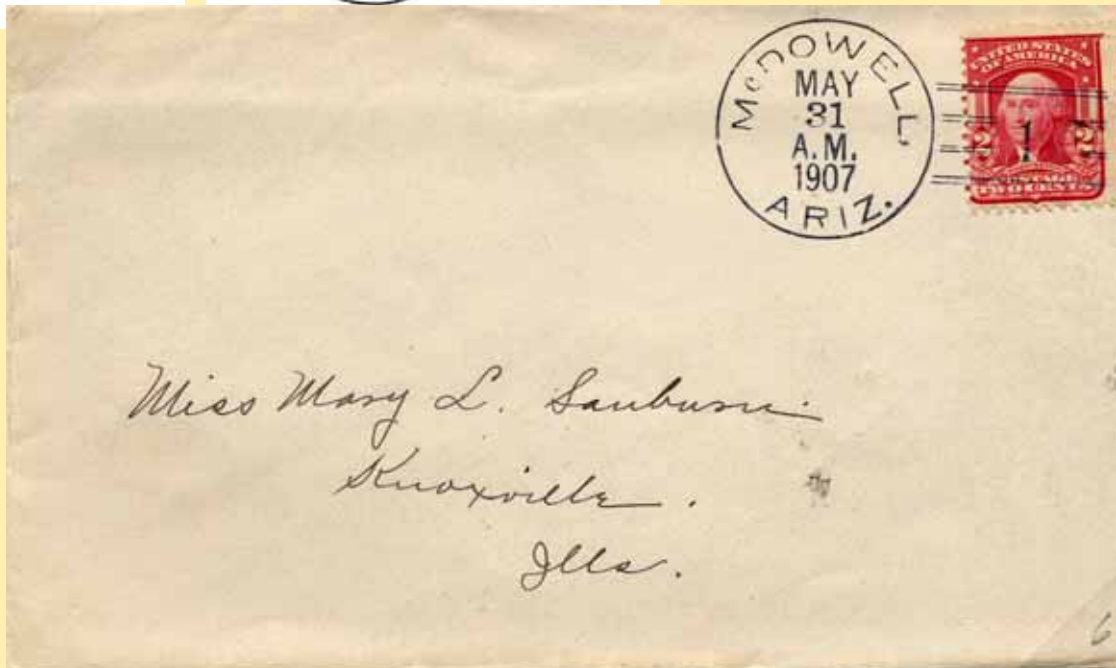 McDOWELL,
MAY
31
A.M.
1907
ARIZ.
UNITED STATES
OF AMERICA
2 1 2
POSTAGE
TWO CENTS
Miss Mary L. Sanburn
Knoxville.
Ills.
6